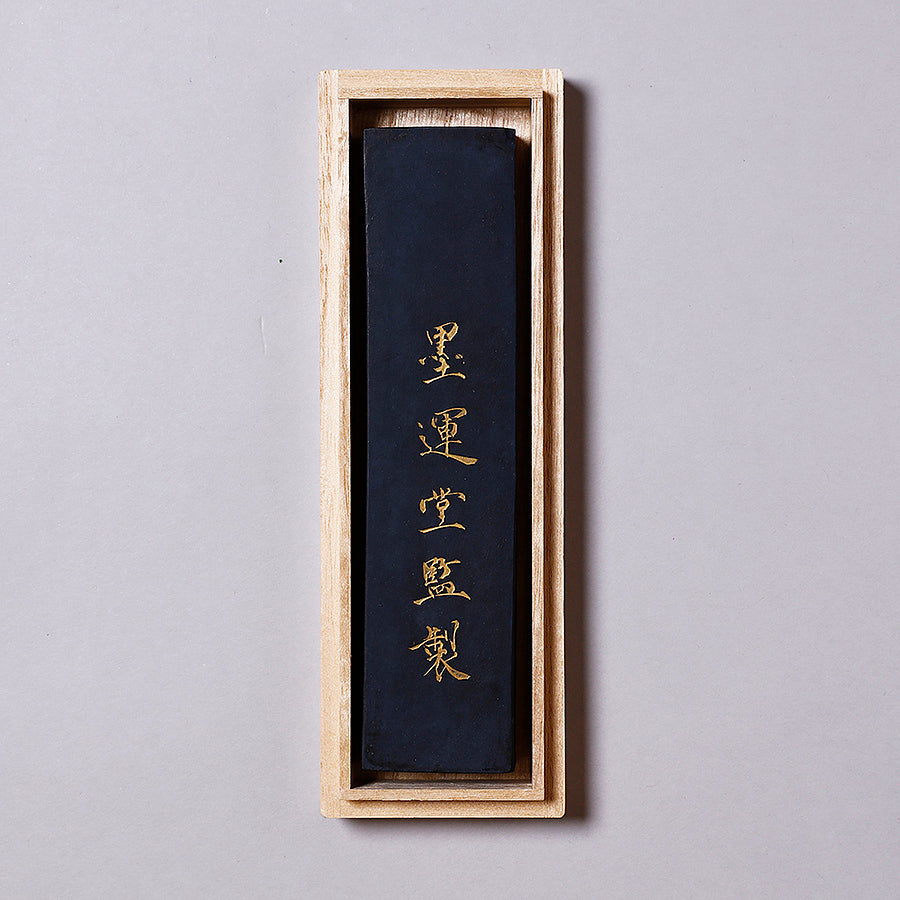 墨運堂監製